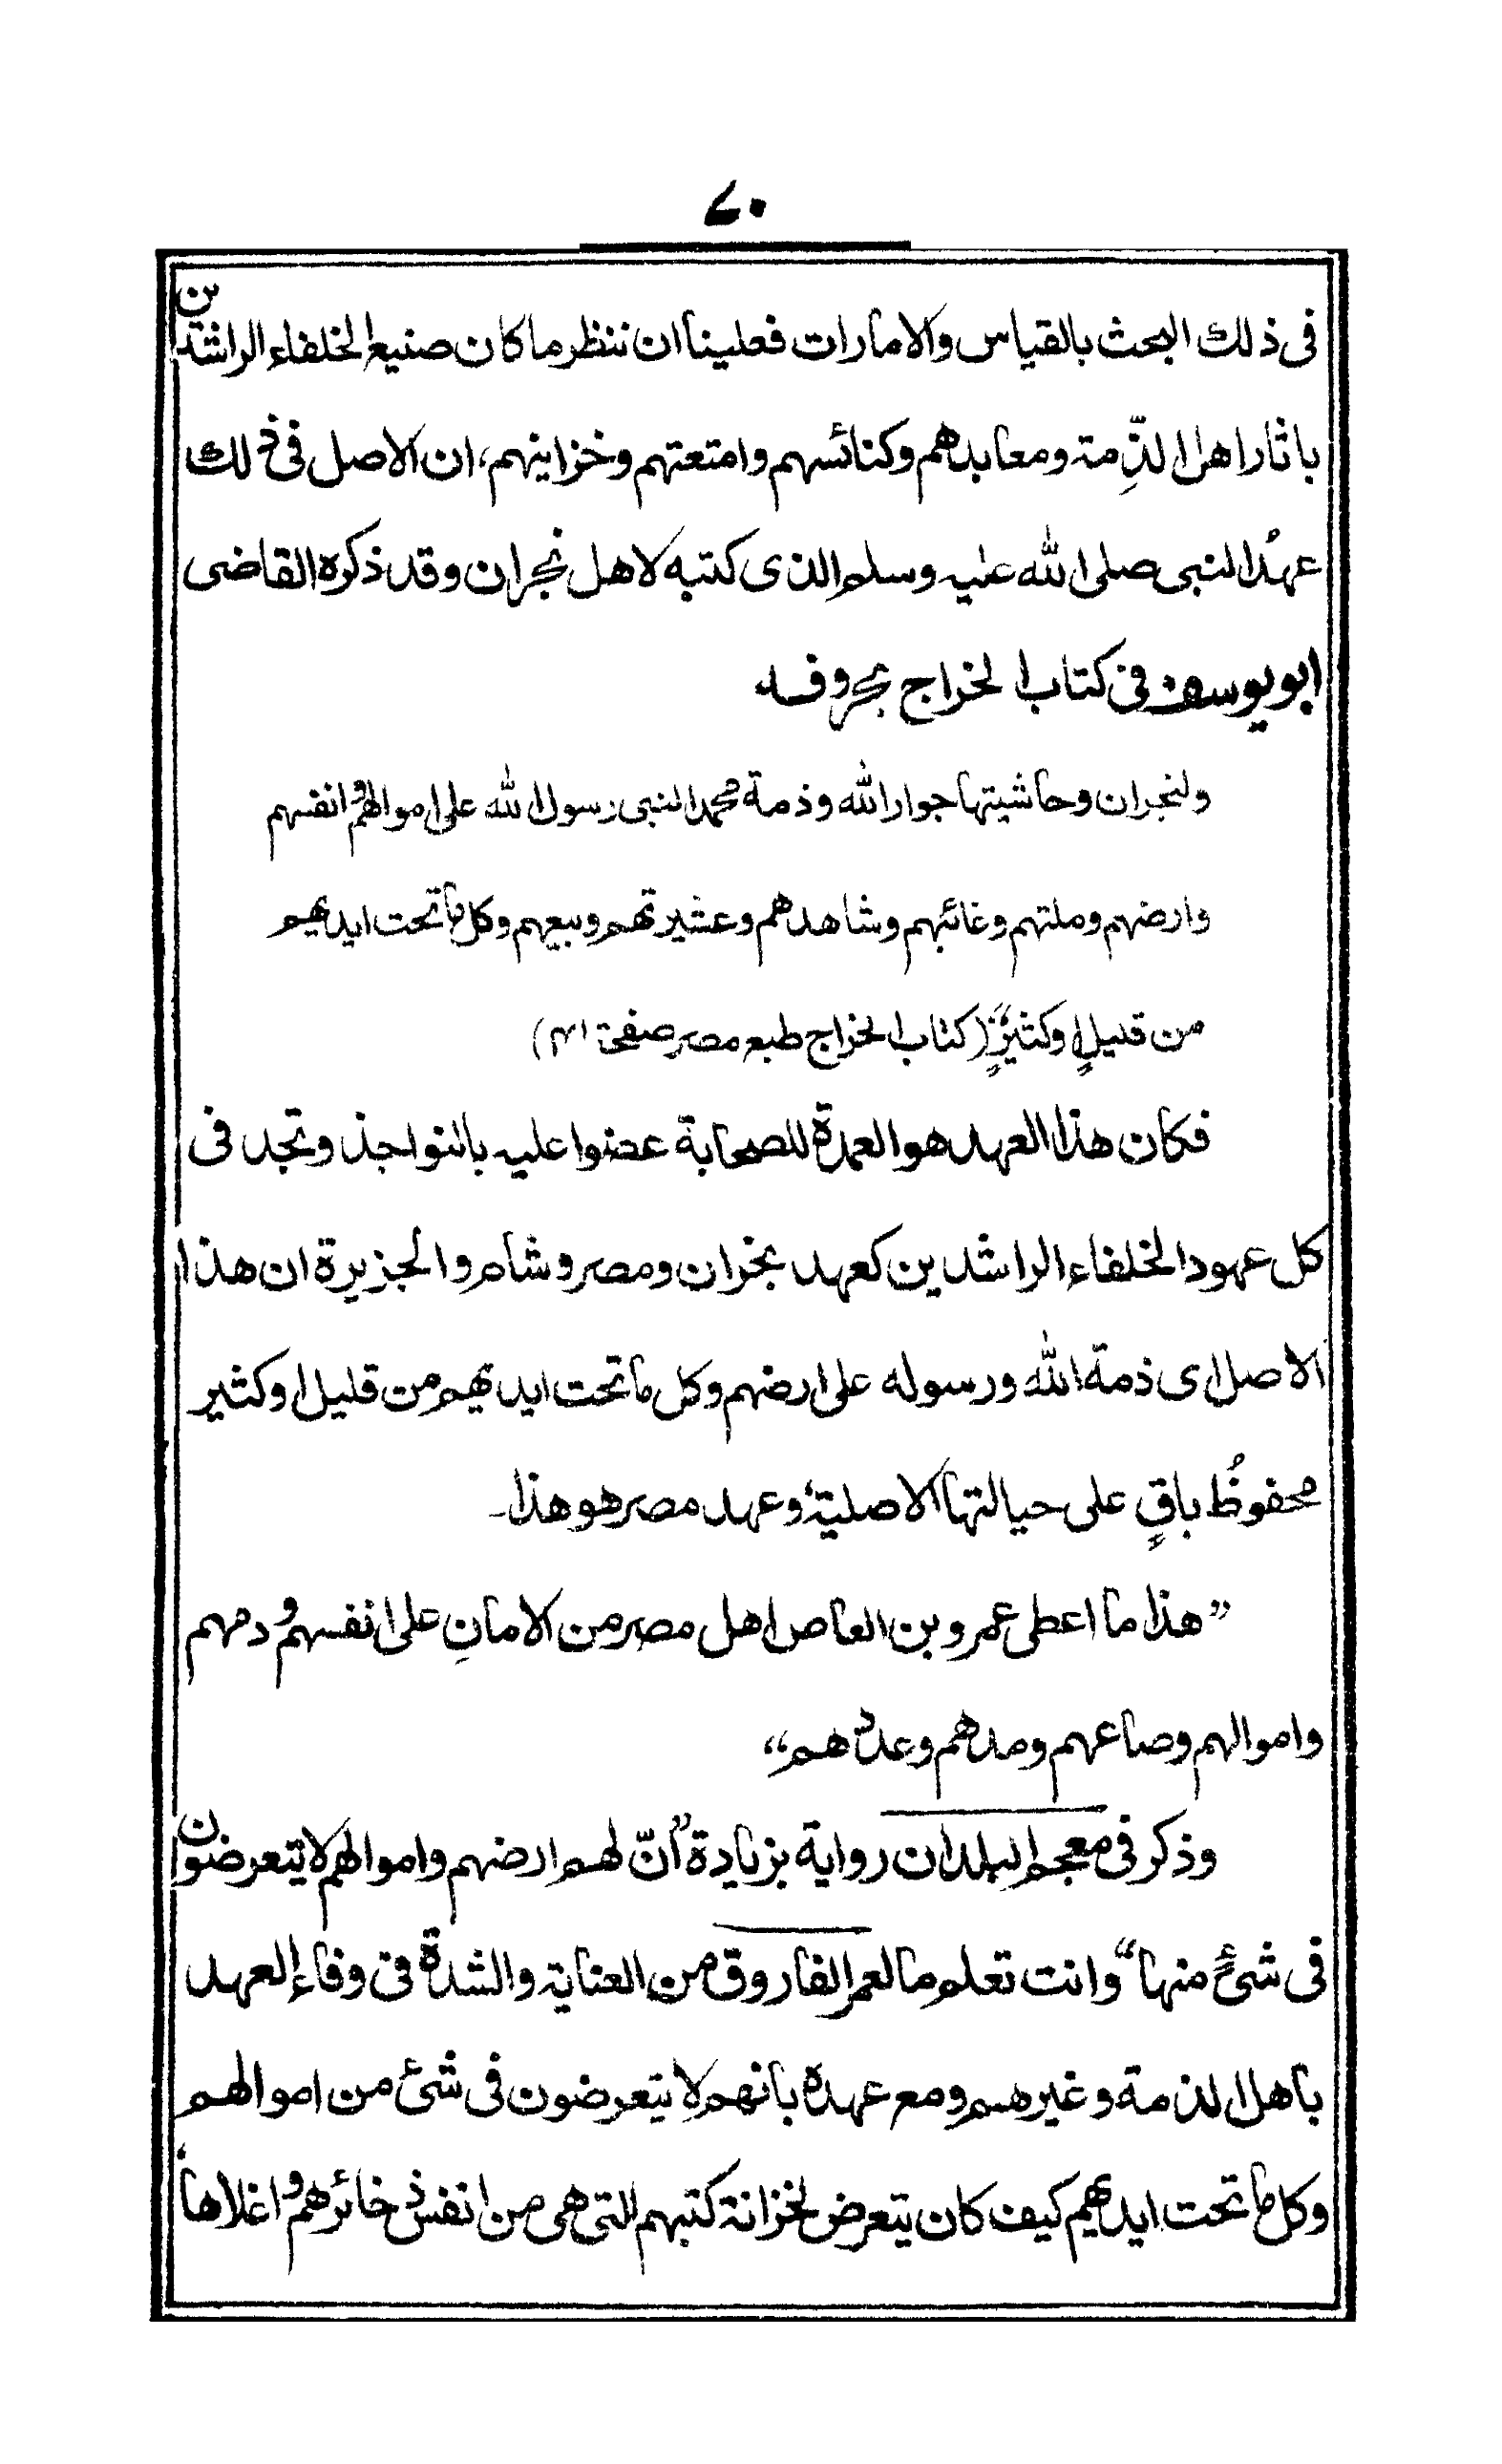 ۷۰
فی ذلك البحث بالقیاس والامارات فعلینا ان ننظر ما كان صنیع الخلفاء الراشدین
باثار اهل الذِّمة ومعابدهم وكنائسهم وامتعتهم وخزاینهم، ان الاصل فی ذلك
عهدُ النبی صلی الله علیه وسلم الذی كتبه لاهل نجران وقد ذكره القاضی
ابو یوسف فی كتاب الخراج بحروفه
ولنجران وحاشیتها جوار الله وذمة محمد النبی رسول الله علی اموالهم وانفسهم
وارضهم وملتهم وغائبهم وشاهدهم وعشیرتهم وبیعهم وكل ما تحت ایدیهم
من قلیلٍ اوكثیرٍ" (كتاب الخراج طبع مصر صفحة ۴۱)
فكان هذا العهد هو العمدة للصحابة عضوا علیه بالنواجذ وتجد فی
كل عهود الخلفاء الراشدین كعهد نجران ومصر وشام والجزیرة ان هذا
الاصل ای ذمة الله ورسوله علی ارضهم وكل ما تحت ایدیهم من قلیل اوكثیر
محفوظُ باقٍ علی حیالتها الاصلیة، وعهد مصر هو هذا۔
"هذا ما اعطی عمرو بن العاص اهل مصر من الامانِ علی انفسهم ودمهم
واموالهم وصاعهم ومدهم وعددهم"
وذكر فی معجم البلدان روایة بزیادة "انّ لهم ارضهم واموالهم لا یتعرضون
فی شئٍ منها" وانت تعلم ما لعمر الفاروق من العنایة والشدة فی وفاء العهد
باهل الذمة وغیرهم ومع عهده بانهم لا یتعرضون فی شئ من اموالهم
وكل ما تحت ایدیهم كیف كان یتعرض لخزانة كتبهم التی هی من انفس ذخائرهم واغلاها،